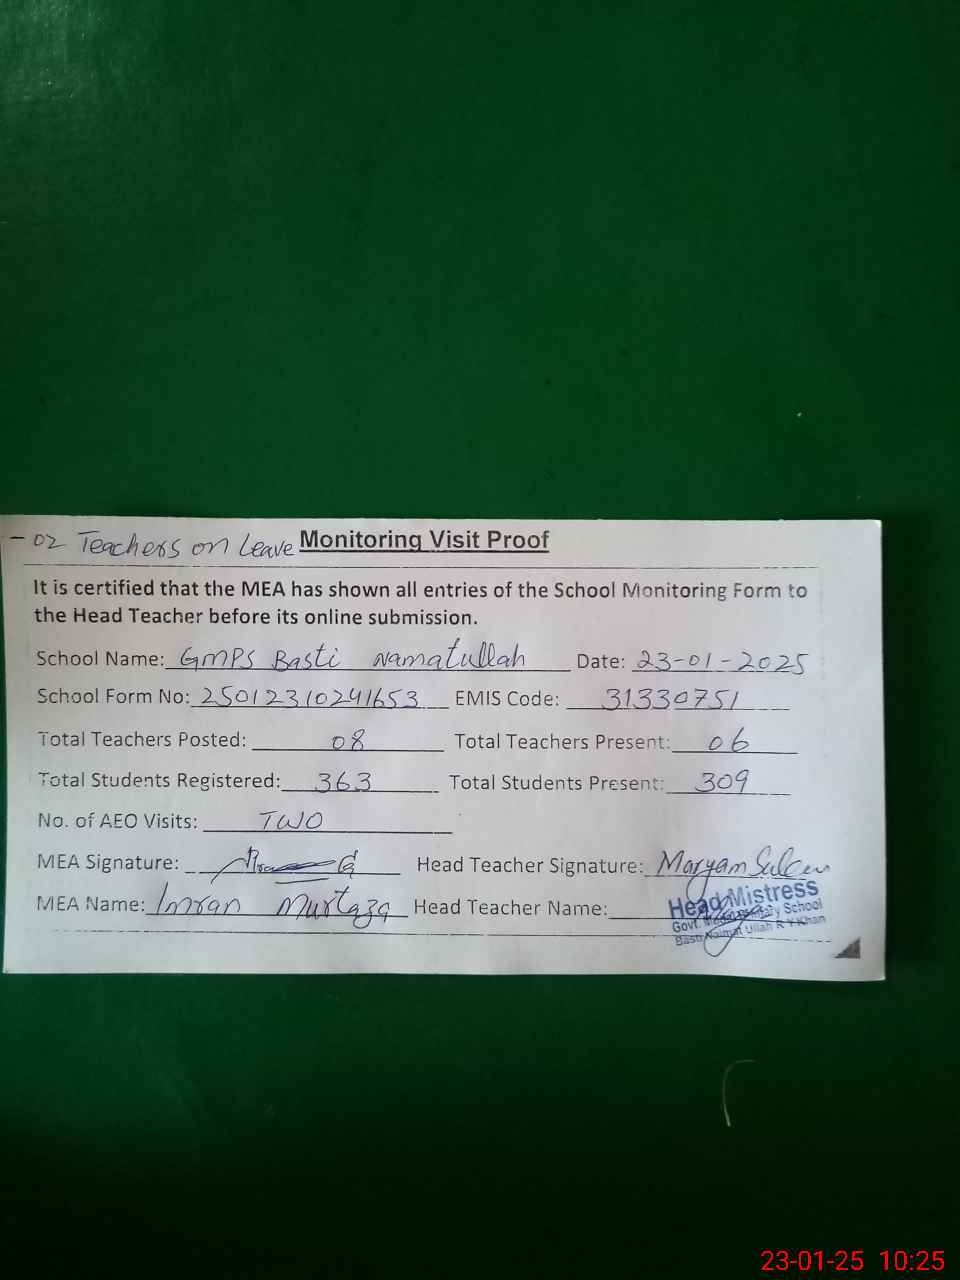 - 02 Teachers on Leave Monitoring Visit Proof
It is certified that the MEA has shown all entries of the School Monitoring Form to
the Head Teacher before its online submission.
School Name: GMPS Basti Namatullah Date: 23-01-2025
School Form No: 25012310241653 EMIS Code: 31330751
Total Teachers Posted: 08 Total Teachers Present: 06
Total Students Registered: 363 Total Students Present: 309
No. of AEO Visits: TWO
MEA Signature: Head Teacher Signature: Maryam
MEA Name: Imran Murtaza Head Teacher Name:
Head Mistress
Govt. Model Primary School
Basti Naimat Ullah R Y Khan
23-01-25 10:25